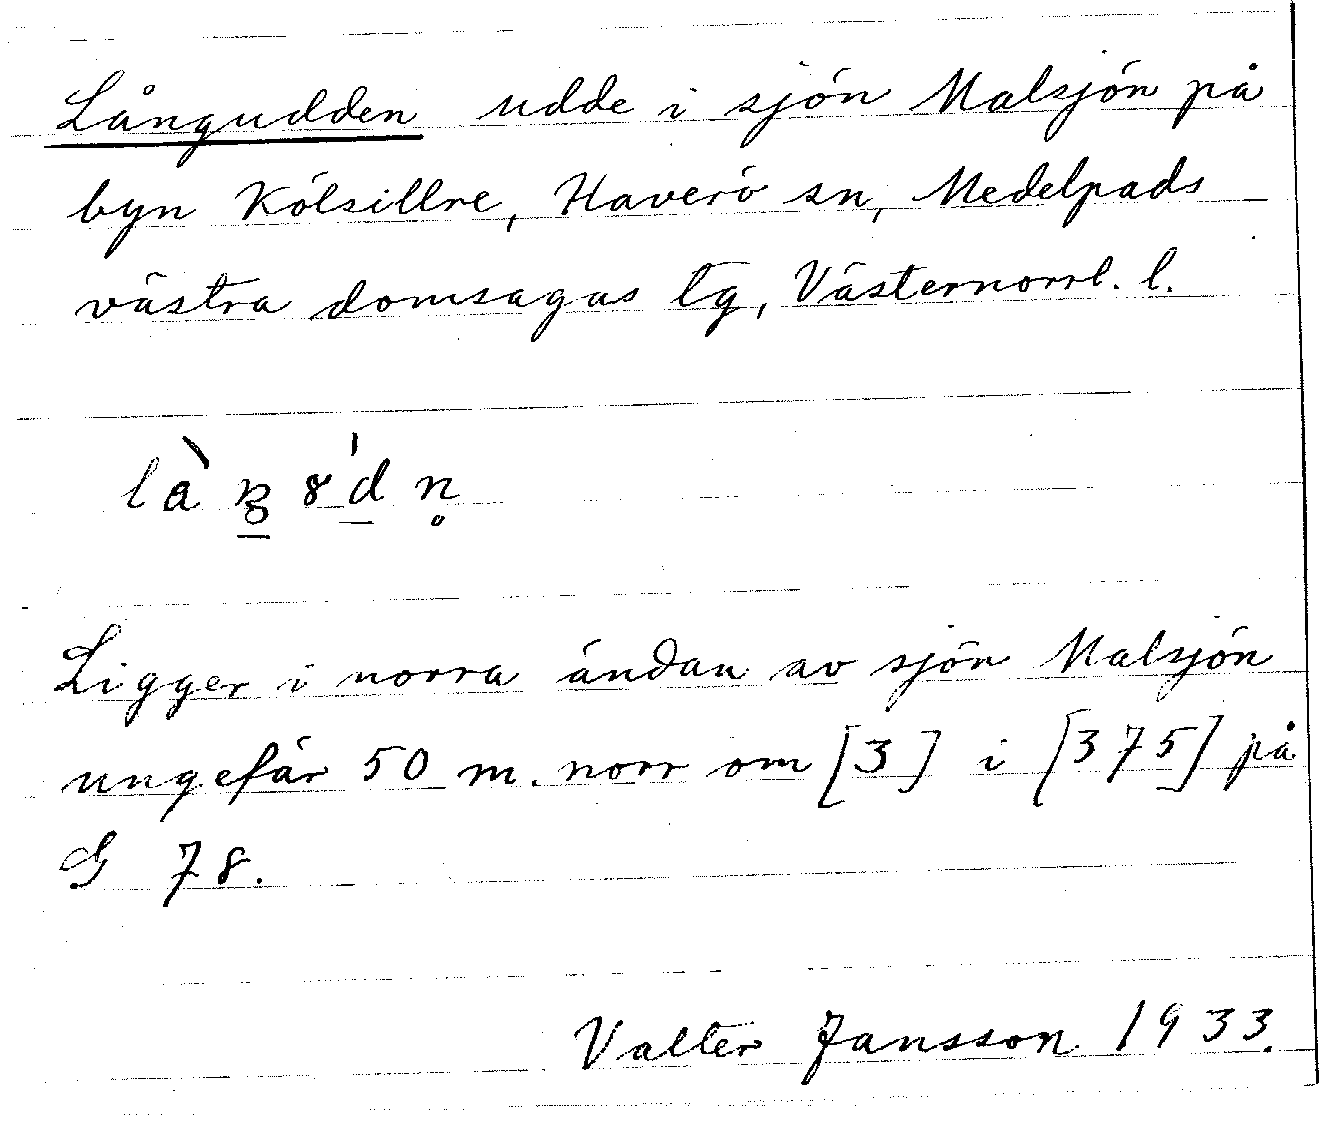 Långudden udde i sjön Malsjön på
byn Kölsillre, Haverö sn, Medelpads
västra domsagas tg, Västernorrl. l.
Ligger i norra ändan av sjön Malsjön
ungefär 50 m. norr om [3] i [375] på
G 78.
Valter Jansson 1933.